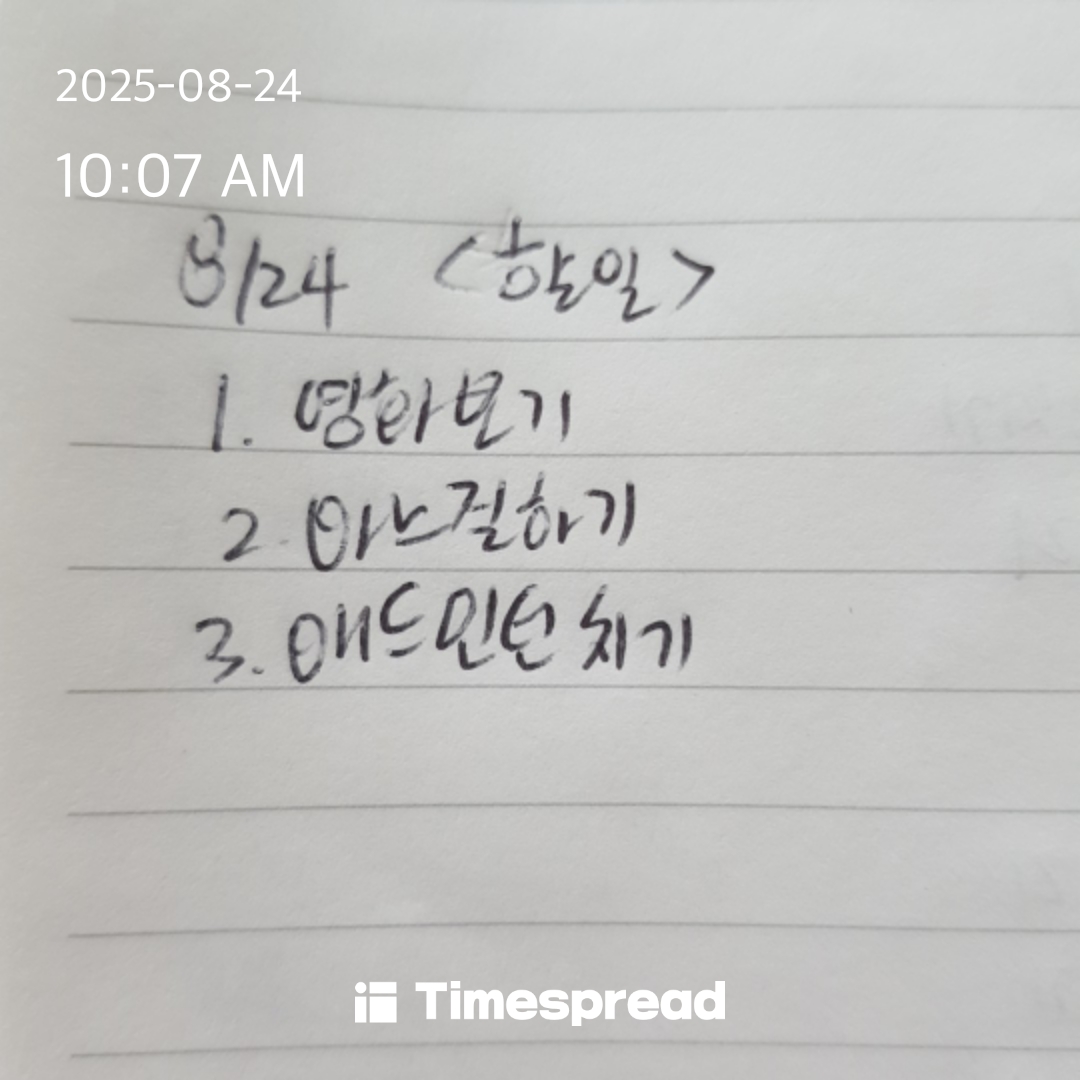 2025-08-24
10:07 AM
8/24 <할일>
1. 영화보기
2. 마느질하기
3. 배드민턴 치기
Timespread